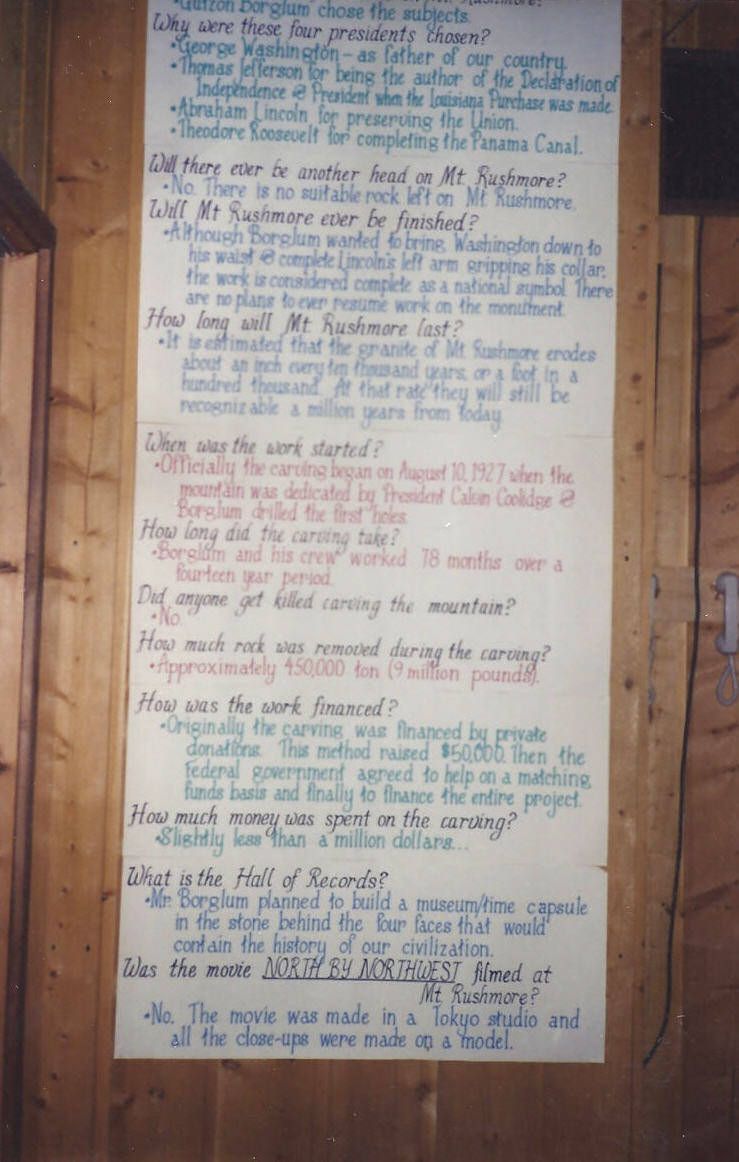 Gutzon Borglum chose the subjects.
Why were these four presidents chosen?
•George Washington – as father of our country.
•Thomas Jefferson for being the author of the Declaration of
Independence & President when the Louisiana Purchase was made.
•Abraham Lincoln for preserving the Union.
•Theodore Roosevelt for completing the Panama Canal.
Will there ever be another head on Mt. Rushmore?
•No. There is no suitable rock left on Mt. Rushmore.
Will Mt Rushmore ever be finished?
•Although Borglum wanted to bring Washington down to
his waist & complete Lincoln's left arm gripping his collar,
the work is considered complete as a national symbol. There
are no plans to ever resume work on the monument.
How long will Mt. Rushmore last?
•It is estimated that the granite of Mt. Rushmore erodes
about an inch every ten thousand years, or a foot in a
hundred thousand. At that rate they will still be
recognizable a million years from today.
When was the work started?
•Officially the carving began on August 10, 1927 when the
mountain was dedicated by President Calvin Coolidge &
Borglum drilled the first holes.
How long did the carving take?
•Borglum and his crew worked 78 months over a
fourteen year period.
Did anyone get killed carving the mountain?
•No.
How much rock was removed during the carving?
•Approximately 450,000 ton (9 million pounds).
How was the work financed?
•Originally the carving was financed by private
donations. This method raised $50,000. Then the
federal government agreed to help on a matching
funds basis and finally to finance the entire project.
How much money was spent on the carving?
•Slightly less than a million dollars...
What is the Hall of Records?
•Mr. Borglum planned to build a museum/time capsule
in the stone behind the four faces that would
contain the history of our civilization.
Was the movie NORTH BY NORTHWEST filmed at
Mt. Rushmore?
•No. The movie was made in a Tokyo studio and
all the close-ups were made on a model.